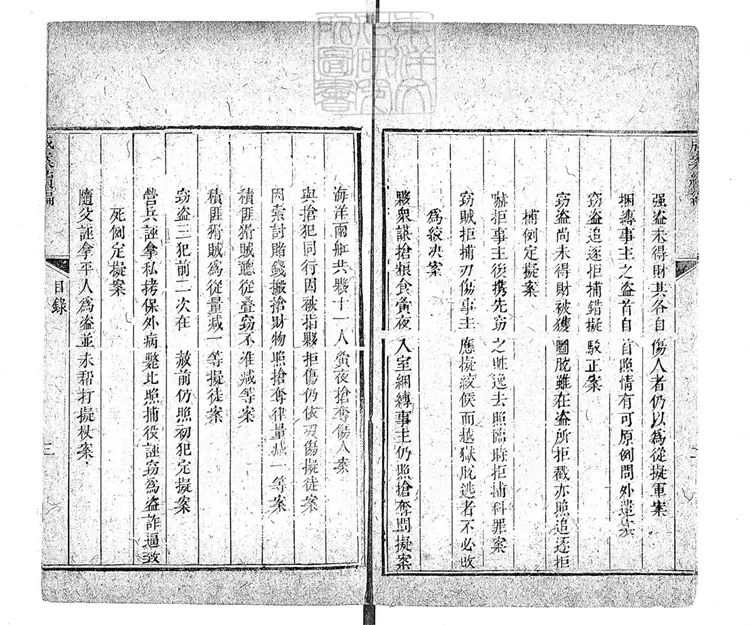 强盜未得財其各自傷人者仍以為從擬軍案
捆縳事主之盜首自首照情有可原例問外遣案
竊盜追逐拒捕錯擬駁正案
竊盜尚未得財被獲圖脫雖在盜所拒截亦照追逐拒
捕例定擬案
嚇拒事主後携先竊之賍逸去照臨時拒捕科罪案
竊賊拒捕刃傷事主應擬絞候而越獄脫逃者不必改
為絞决案
夥衆謀搶粮食黃夜入室綑縳事主仍照搶奪問擬案
海洋兩船共夥十一人黃夜搶奪傷人案
與搶犯同行因被指夥拒傷仍依刃傷擬徒案
因索討賭錢搬搶財物照搶奪律量减一等案
積匪猾賊聽從叠竊不准减等案
積匪猾賊為從量减一等擬徒案
竊盜三犯前二次在赦前仍照初犯定擬案
營兵誣拿私拷保外病斃比照捕役誣竊為盜詐逼致
死例定擬案
隨父誣拿平人為盜並未帮打擬杖案
目錄
三